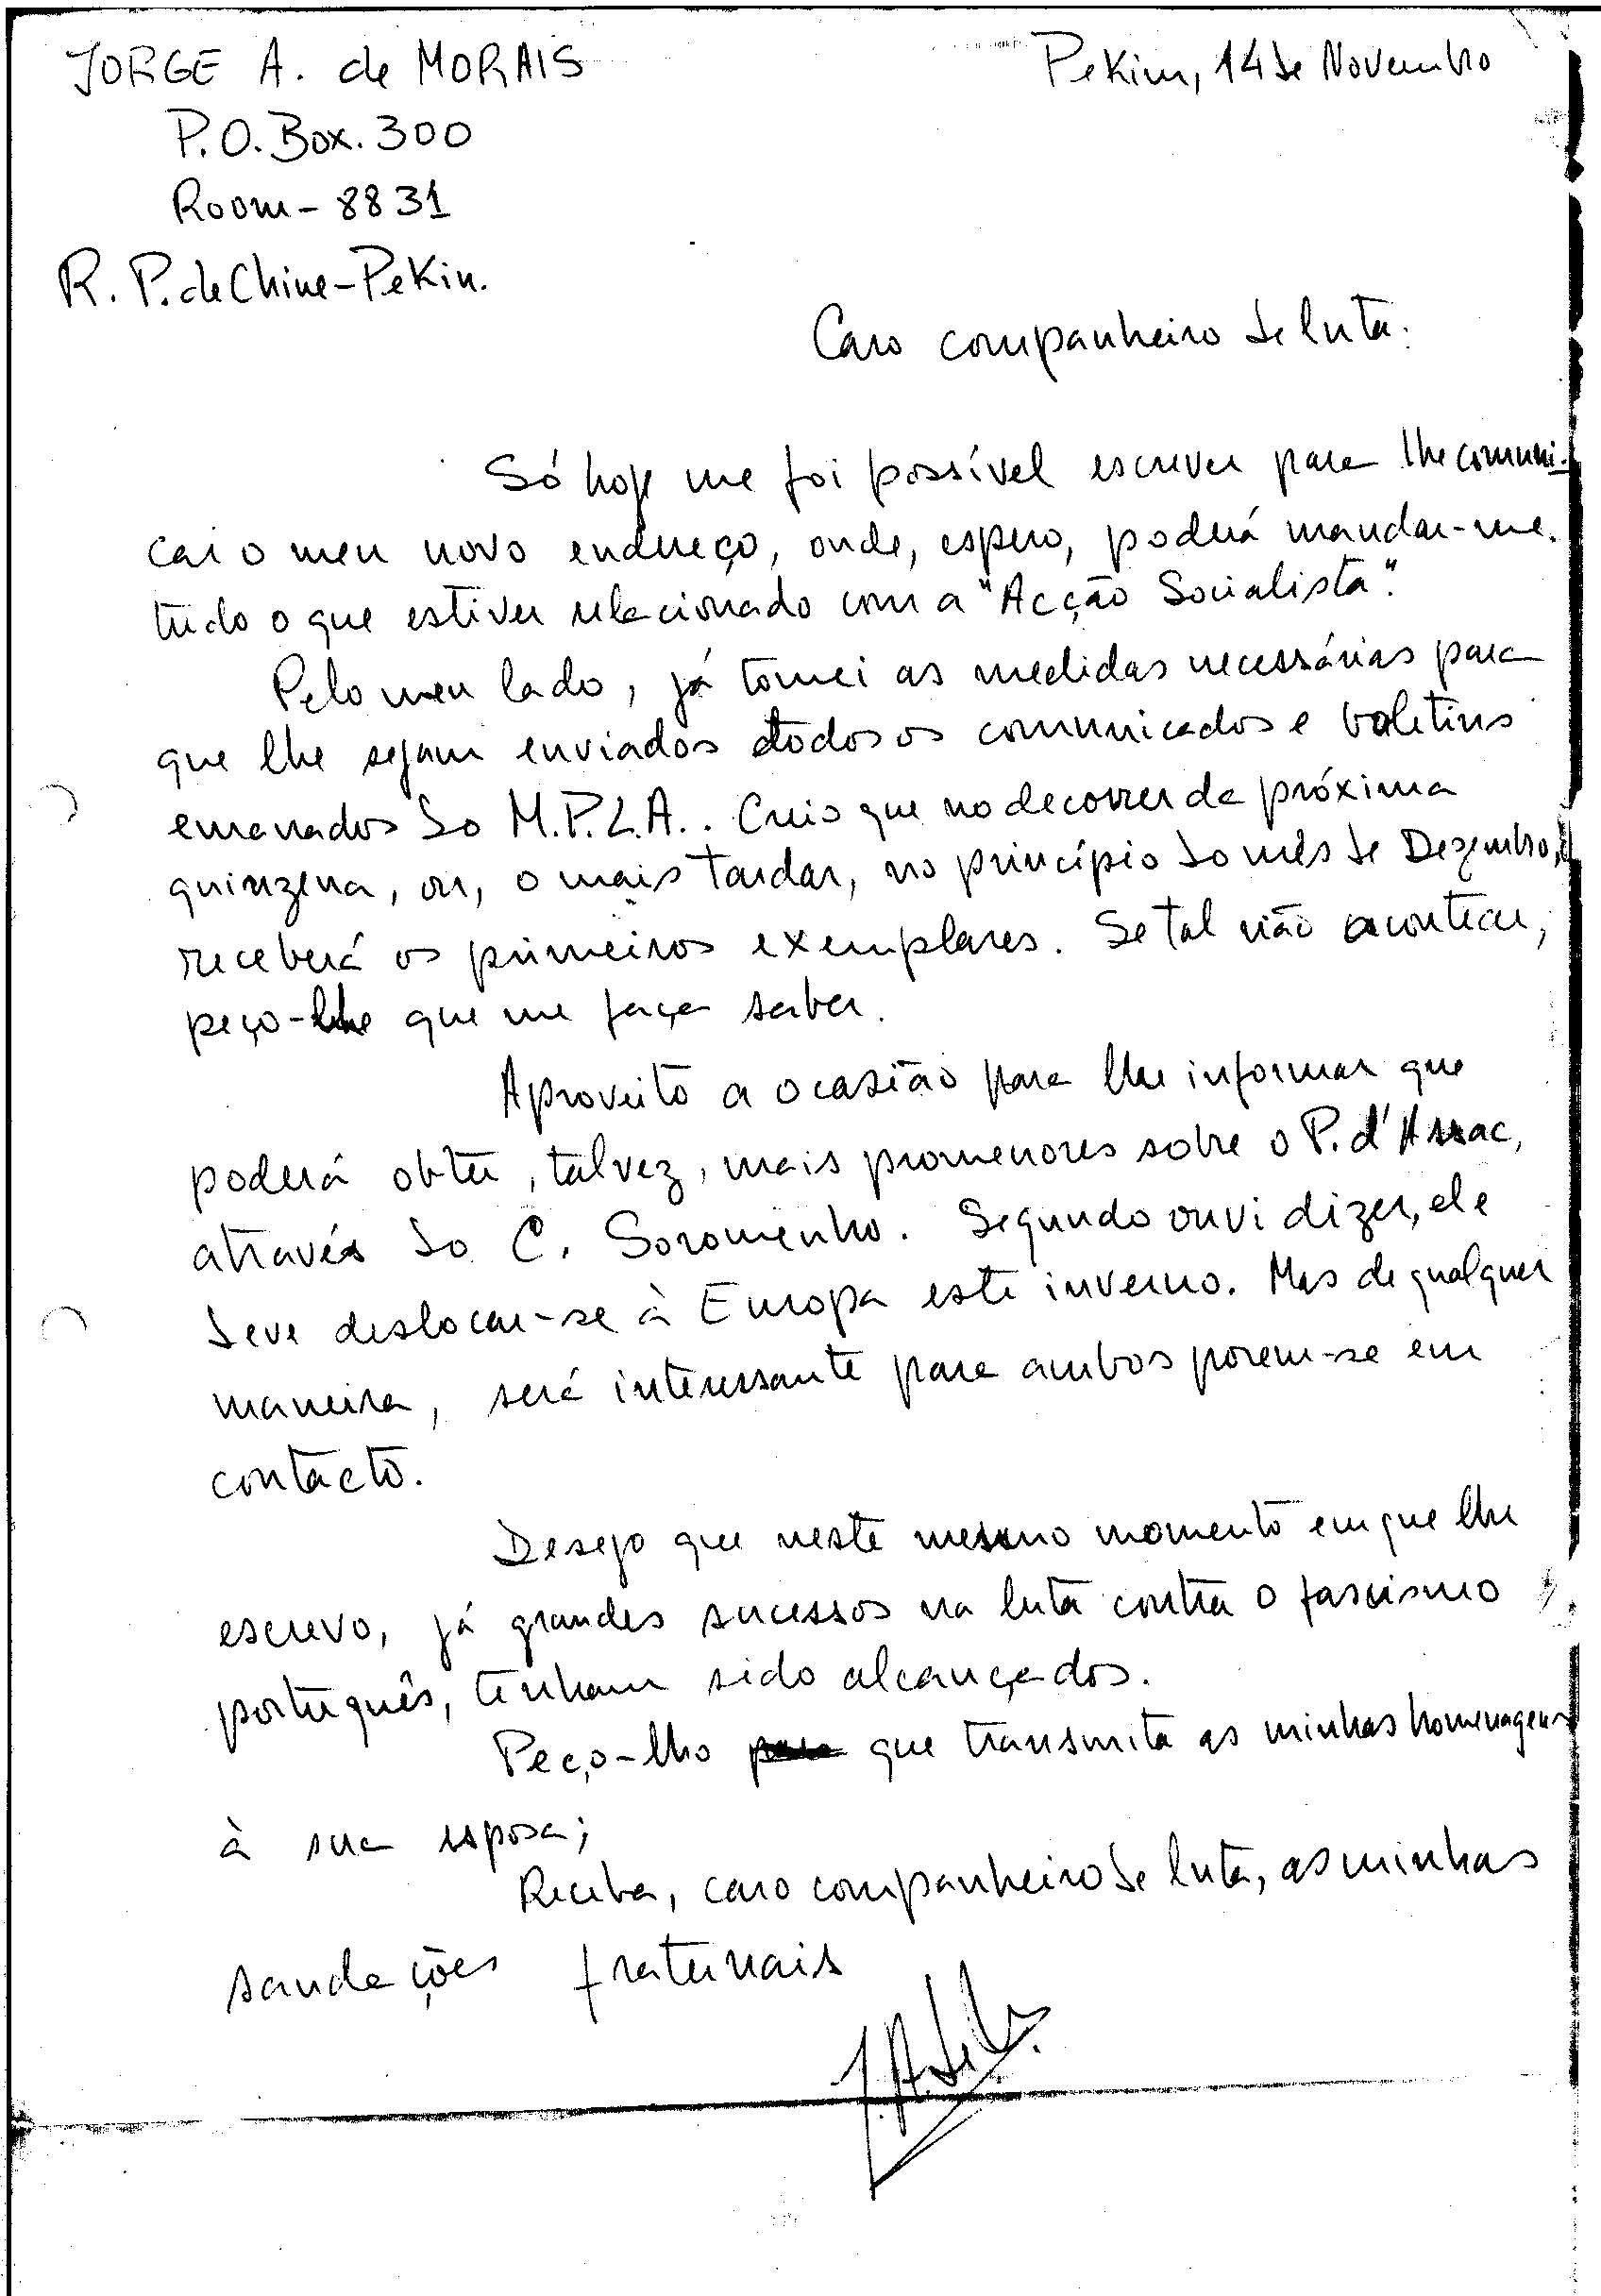 JORGE A. de MORAIS
Pekim, 14 de Novembro
P.O. Box. 300
Room - 8831
R. P. de Chine - Pekin.
Caro companheiro de luta:
Só hoje me foi possível escrever para lhe comuni-
car o meu novo endereço, onde, espero, poderá mandar-me
tudo o que estiver relacionado com a "Acção Socialista".
Pelo meu lado, já tomei as medidas necessárias para
que lhe sejam enviados todos os comunicados e boletins
emanados do M.P.L.A.. Creio que no decorrer da próxima
quinzena, ou, o mais tardar, no princípio do mês de Dezembro,
receberá os primeiros exemplares. Se tal não acontecer,
peço-lhe que me faça saber.
Aproveito a ocasião para lhe informar que
poderá obter, talvez, mais promenores sobre o P. d'
através do C. Soromenho. Segundo ouvi dizer, ele
deve deslocar-se à Europa este inverno. Mas de qualquer
maneira, será interessante para ambos porem-se em
contacto.
Desejo que neste mesmo momento em que lhe
escrevo, já grandes sucessos na luta contra o fascismo
português, tenham sido alcançados.
Peço-lho que transmita as minhas homenagens
à sua esposa;
Receba, caro companheiro de luta, as minhas
saudações fraternais